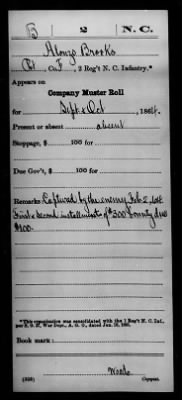 B 2 N. C.
Alonzo Brooks
Pvt, Co. F, 2 Reg't N. C. Infantry.*
Appears on
Company Muster Roll
for Sept & Oct, 1864.
Present or absent absent
Stoppage, $ 100 for
Due Gov't, $ 100 for
Remarks: Captured by the enemy Feb 2, 64
First & second installment of $300 bounty due
$100.
*This organization was consolidated with the 1 Reg't N. C. Inf.,
per S. O. War Dept., A. G. O., dated
Book mark:
(358) Copyist.